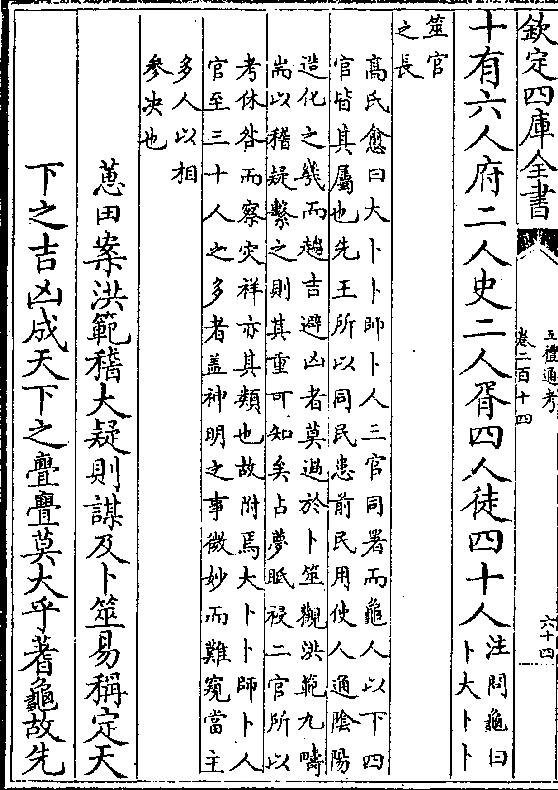 欽定四庫全書
五禮通考
卷二百十四
六十四
十有六人府二人史二人胥四人徒四十人注問龜曰
卜大卜卜
筮官
之長
高氏愈曰大卜卜師卜人三官同署而龜人以下四
官皆其屬也先王所以同民患前民用使人通陰陽
造化之幾而趨吉避凶者莫過於卜筮觀洪範九疇
耑以稽疑繫之則其重可知矣占夢眡祲二官所以
考休咎而察灾祥亦其類也故附焉大卜卜師卜人
官至三十人之多者盖神明之事微妙而難窺當主
多人以相
參决也
蕙田案洪範稽大疑則謀及卜筮易稱定天
下之吉凶成天下之亹亹莫大乎蓍龜故先